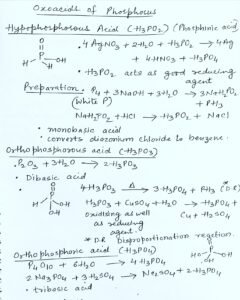 Oxoacids of Phosphorus
Hypophosphorous Acid (H3PO2) (Phosphinic acid)
O
P
H H OH
• 4 AgNO3 + 2H2O + H3PO2 → 4Ag
+ 4HNO3 + H3PO4
• H3PO2 acts as good reducing
agent
Preparation. P4 + 3NaOH + 3H2O → 3NaH2PO2
(White P) + PH3
NaH2PO2 + HCl → H3PO2 + NaCl
• monobasic acid
• converts diazonium chloride to benzene.
Orthophosphorous acid (H3PO3)
• P2O3 + 3H2O → 2H3PO3
• Dibasic acid
• 4H3PO3 Δ→ 3H3PO4 + PH3 (*D.R)
O
P
H OH
OH
H3PO3 + CuSO4 + H2O → H3PO4 +
Cu + H2SO4
oxidising as well
as reducing
agent.
* D.R Disproportionation reaction.
Orthophosphoric acid (H3PO4)
P4O10 + 6H2O → 4H3PO4
2 Na3PO4 + 3H2SO4 → Na2SO4 + 2H3PO4
• tribasic acid
O
P
HO OH
OH